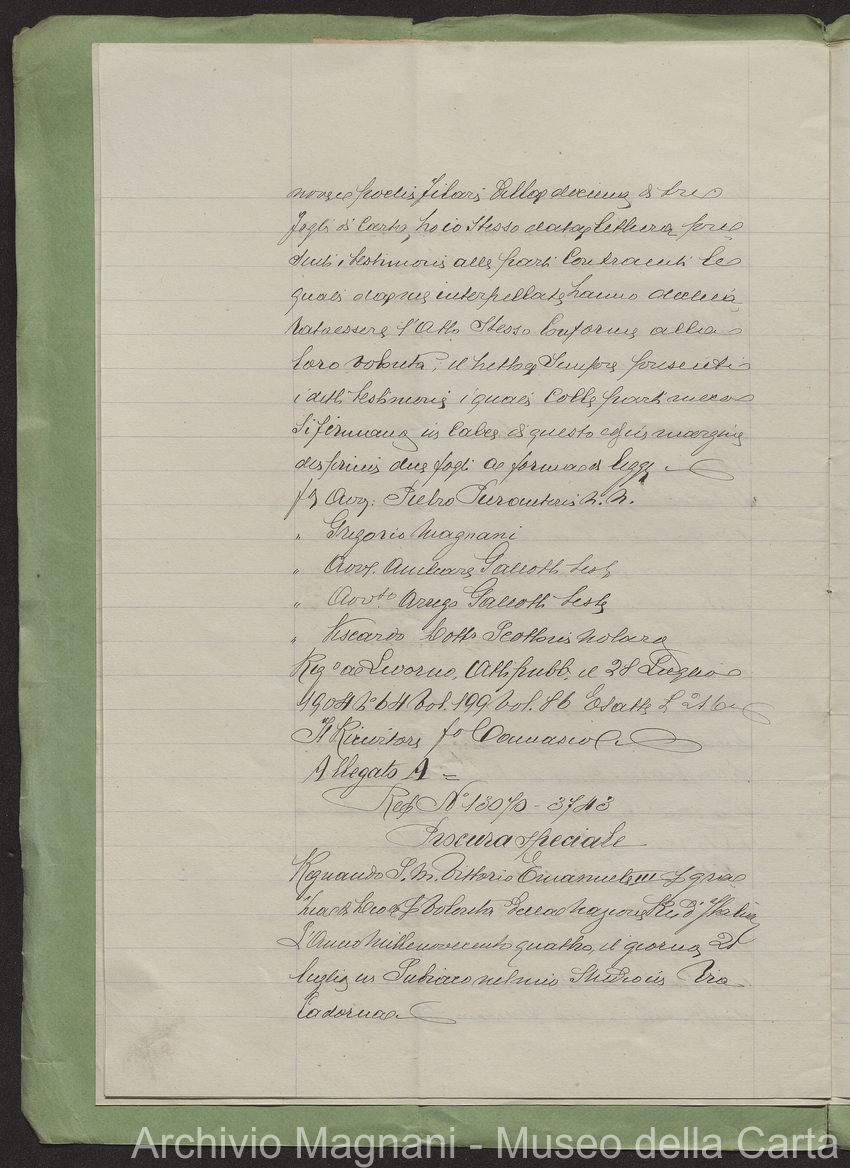 nove e poche filari della decima di tre
fogli di Carta, ho io stesso data lettura pre
senti i testimoni alle parti Contraenti le
quali da me interpellate hanno dichia
rato essere l'Atto stesso Conforme alla
loro volontà, il tutto sempre presenti
i detti testimoni i quali colle parti meco
si firmano in calce di questo ed in margine
dei primi due fogli a forma di legge
fi Avv: Pietro N. N.
" Gregorio Magnani
" Avv. Amilcare Galeotti teste
" Avvto Arrigo Galeotti teste
" Viscardo Dotto Notaro
Rego a Livorno, Atti pubb. il 28 Luglio
1904 No 64 Vol. 199 Vol. 86 Esatte L
Il Ricevitore fo Damasco
Allegato A =
Rep No 13070 - 3743
Procura speciale
Regnando S. M. Vittorio Emanuele III per gra
zia di Dio e per Volontà della Nazione Re d'Italia
L'Anno Millenovecento quattro, il giorno 21
luglio in Subiaco nel mio Studio in Via
Cadorna
Archivio Magnani - Museo della Carta